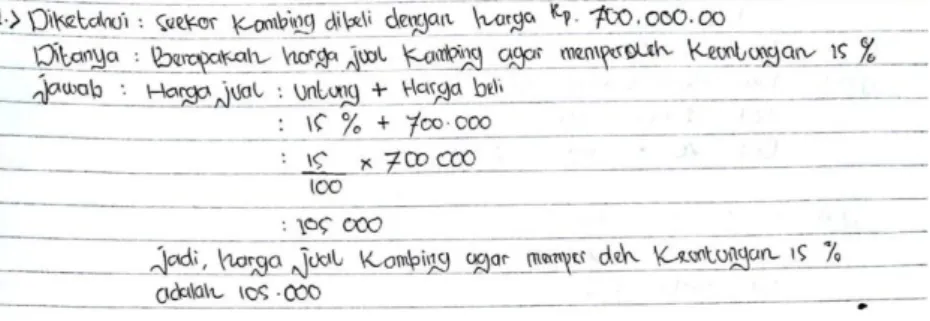 1.> Diketahui : Seekor Kambing dibeli dengan harga Rp. 700.000.00
Ditanya : Berapakah harga jual Kambing agar memperoleh Keuntungan 15 %
Jawab : Harga jual : Untung + Harga beli
: 15 % + 700.000
: 15 x 700 000
100
: 105 000
Jadi, harga jual Kambing agar memper oleh Keuntungan 15 %
adalah 105.000